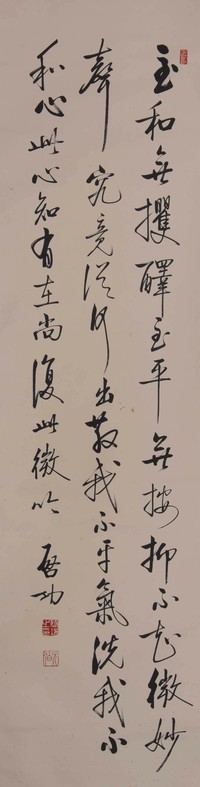 至和無攫醳至平無按抑不知微妙
聲究竟從何出散我不平氣洗我不
和心此心知有在尚復此微吟
啟功